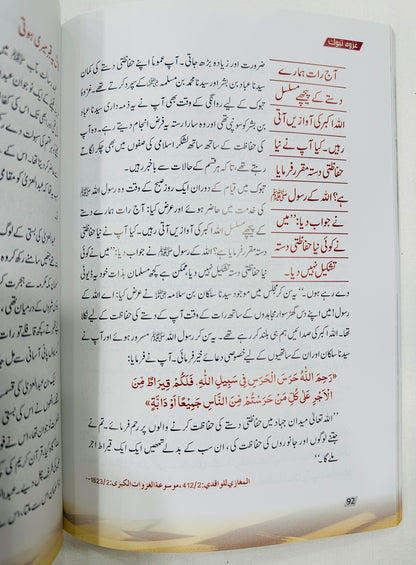 غزوہ تبوک
ضرورت اور زیادہ بڑھ جاتی۔ آپ عموماً اپنے حفاظتی دستے کی کمان
سیدنا عباد بن بشر اور سیدنا محمد بن مسلمہ ﷢ کے سپرد کرتے تھے۔ غزوۂ
تبوک کے لیے روانگی کے وقت بھی آپ نے یہ ذمہ داری سیدنا عباد
بن بشر کو سونپی تھی اور وہ سارا رستہ یہ فرض انجام دیتے رہے۔ وہ
اپنے ساتھیوں کے ساتھ لشکر اسلامی کی صفوں میں بھی چکر لگاتے
رہتے تھے، تاکہ ہر قسم کے حالات سے باخبر رہیں۔
تبوک میں قیام کے دوران ایک روز صبح کے وقت وہ رسول اللہ ﷺ
کی خدمت میں حاضر ہوئے اور عرض کیا: آج رات ہمارے دستے
کے پیچھے مسلسل اللہ اکبر کی آوازیں آتی رہیں۔ کیا آپ نے نیا
حفاظتی دستہ مقرر فرمایا ہے؟ رسول اللہ ﷺ نے جواب دیا: ”میں نے کوئی
نیا حفاظتی دستہ تشکیل نہیں دیا، ممکن ہے کچھ مسلمان بذات خود یہ ڈیوٹی
آج رات ہمارے
دستے کے پیچھے مسلسل
اللہ اکبر کی آوازیں آتی
رہیں۔ کیا آپ نے نیا
حفاظتی دستہ مقرر فرمایا
ہے؟ اللہ کے رسول ﷺ
نے جواب دیا: ”میں
نے کوئی نیا حفاظتی دستہ
تشکیل نہیں دیا۔
دے رہے ہوں۔“ یہ سن کر مجلس میں موجود سیدنا سلکان بن سلامہ نے عرض کیا: اے اللہ کے
رسول! میں اپنے دس گھڑ سوار مجاہدوں کے ساتھ رات کے وقت آپ کے دستے کی حفاظت کے لیے نکلا
تھا۔ اللہ اکبر کی صدائیں ہم ہی بلند کر رہے تھے۔ یہ سن کر رسول اللہ ﷺ مسرور ہوئے اور آپ نے
سیدنا سلکان اور ان کے ساتھیوں کے لیے خصوصی دعائے خیر فرمائی۔ آپ نے فرمایا:
«رَحِمَ اللّٰهُ حَرَسَ الْحَرَسِ فِي سَبِيلِ اللّٰهِ، فَلَكُمْ قِيرَاطٌ مِّنَ
الْأَجْرِ عَلٰى كُلِّ مَنْ حَرَسْتُمْ مِنَ النَّاسِ جَمِيعًا أَوْ دَابَّةٍ»
”اللہ تعالیٰ میدان جہاد میں حفاظتی دستے کی حفاظت کرنے والوں پر رحم فرمائے۔ تم نے
جتنے لوگوں اور جانوروں کی حفاظت کی، ان سب کے بدلے تمھیں ایک ایک قیراط اجر
ملے گا۔“
المغازي للواقدي: 412/2، موسوعة الغزوات الكبرى: 1823/2
92